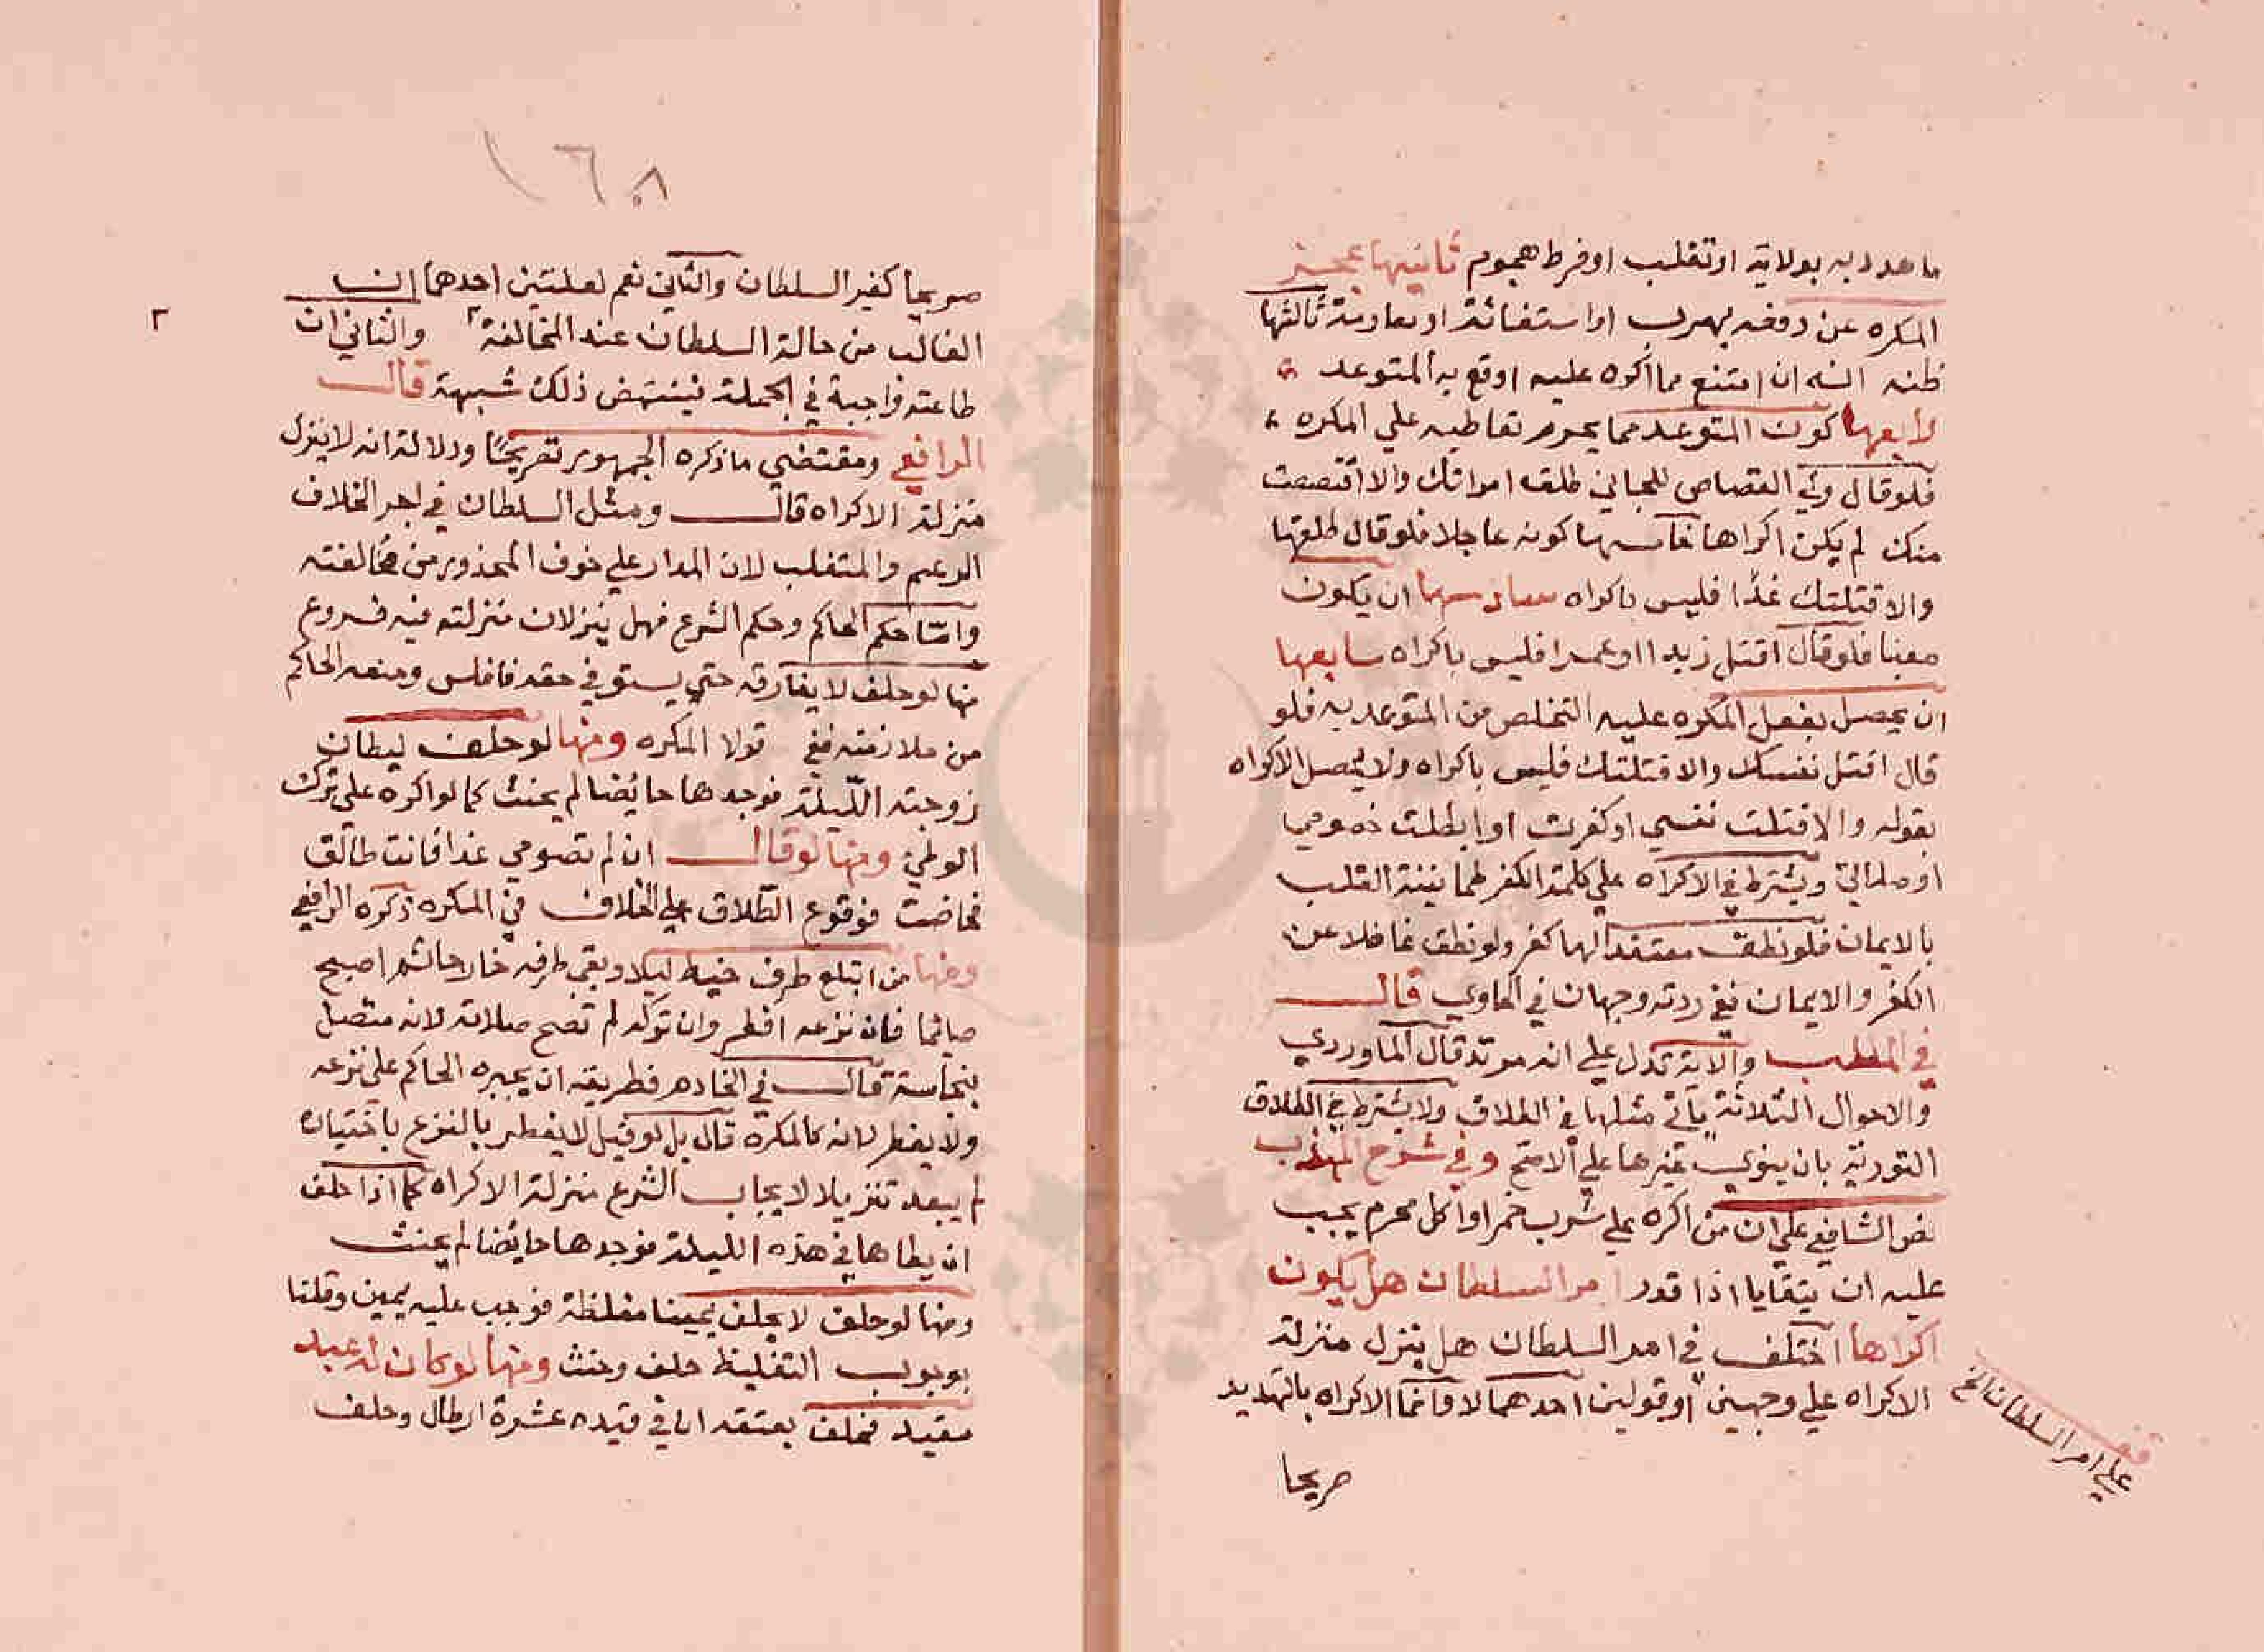 ما هدد به بولاية او تغلب او فرط هجوم ثانيها عجز
المكره عن دفعه بهرب او استغاثة او مقاومة ثالثها
ظنه انه ان امتنع مما اكره عليه اوقع به المتوعد
رابعها كون المتوعد مما يحرم تعاطيه علي المكره
فلو قال ولي القصاص للجاني طلق امراتك والا اقتصصت
منك لم يكن اكراها خامسها كونه عاجلا فلو قال طلقها
والا قتلتك غدا فليس باكراه سادسها ان يكون
معينا فلو قال اقتل زيدا او عمرا فليس باكراه سابعها
ان يحصل بفعل المكره عليه التخلص من المتوعد به فلو
قال اقتل نفسك والا قتلتك فليس باكراه ولا يحصل الاكراه
بقوله والا قتلت نفسي او كفرت او ابطلت صومي
او صلاتي ويشترط في الاكراه علي كلمة الكفر طمانينة القلب
بالايمان فلو نطق معتقدا لها كفر ولو نطق غافلا عن
الكفر والايمان ففي ردته وجهان في الحاوي قال
في المطلب والاية تدل علي انه مرتد قال الماوردي
والاحوال الثلاثة يأتي مثلها في الطلاق ولا يشترط في الطلاق
التورية بان ينوي غيرها علي الاصح وفي شرح المهذب
نص الشافعي علي ان من اكره علي شرب خمر او اكل محرم يجب
عليه ان يتقايا اذا قدر امر السلطان هل يكون
اكراها اختلف في امر السلطان هل ينزل منزلة
الاكراه علي وجهين او قولين احدهما لا وانما الاكراه بالتهديد
صريحا
قف
علي امر السلطان الخ
١٦٨
صريحا كغير السلطان والثاني نعم لعلتين احدهما ان
الغالب من حالة السلطان عند المخالفة ٢ والثاني ان
طاعته واجبة في الجملة فينتهض ذلك شبهة قال
الرافعي ومقتضي ما ذكره الجمهور تفريعا ودلالة انه لا ينزل
منزلة الاكراه قال ومثل السلطان في اجر الخلاف
الزعيم والمتغلب لان المدار علي خوف المحذور من مخالفته
وامّا حكم الحاكم وحكم الشرع فهل ينزلان منزلته فيه فروع
منها لو حلف لا يفارقه حتي يستوفي حقه فافلس ومنعه الحاكم
من ملازمته ففي قولا المكره ومنها لو حلف ليطان
زوجته الليلة فوجدها حائضا لم يحنث كما لو اكره علي ترك
الوطئ ومنها لو قال ان لم تصومي غدا فانت طالق
فحاضت فوقوع الطلاق علي الخلاف في المكره ذكره الرافعي
ومنها من ابتلع طرف خيط ليلا وبقي طرفه خارجا ثم اصبح
صائما فان نزعه افطر وان تركه لم تصح صلاته لانه متصل
بنجاسة قال في الخادم فطريقه ان يجبره الحاكم علي نزعه
ولا يفطر لانه كالمكره قال بل لو قيل لا يفطر بالنزع باختياره
لم يبعد تنزيلا لايجاب الشرع منزلة الاكراه كما اذا حلف
ان يطاها في هذه الليلة فوجدها حائضا لم يحنث
ومنها لو حلف لا يحلف يمينا مغلظة فوجب عليه يمين وقلنا
بوجوب التغليظ حلف وحنث ومنها لو كان له عبد
مقيد فحلف بعتقه ان في قيده عشرة ارطال وحلف
٢